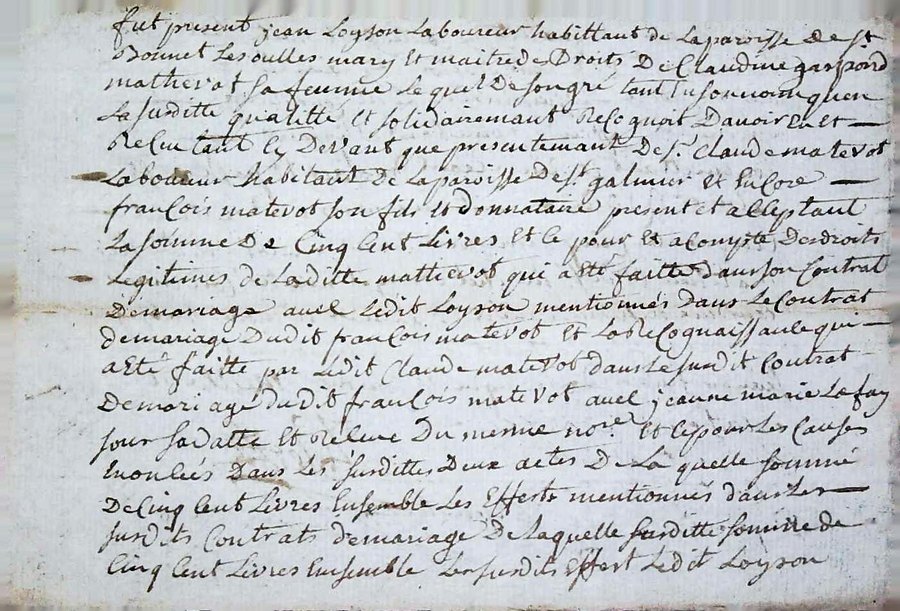 fut present jean Loyson Laboureur habittant de Laparoisse De st
Bonnet Les oulles mary Et maitre de Droits De Claudine gaspard
mathevot sa femme Le quel De son gré tant En son nom quen
La susditte qualitté Et solidairemant Recognoit Davoir Eu Et
Receu tant Cy Devant que presentemant De sr. Claude matevot
Laboureur habitant De Laparoisse De st galmier Et Encore
francois matevot son fils Et donnataire present et acceptant
La somme De Cinq Cent Livres Et Ce pour Et acompte Desdroits
Legitimes de Laditte mathevot qui a Eté faitte dans son Contrat
Demariage avec Ledit Loyson mentionnés Dans Le Contrat
demariage Dudit francois matevot Et La Recognaissance qui
a Eté faitte par Ledit Claude matevot dans Le susdit Contrat
Demariage dudit francois matevot avec jeanne marie Lafay
sous sa Datte Et Receue Du meme nore. Et Ce pour Les Causes
Enoncées Dans Les susdittes Deux actes De La quelle somme
De Cinq Cent Livres Ensemble Les Effects mentionnés dans Les
susdits Contrats demariage De Laquelle susditte somme de
Cinq Cent Livres Ensemble Les susdits Effect Ledit Loyson